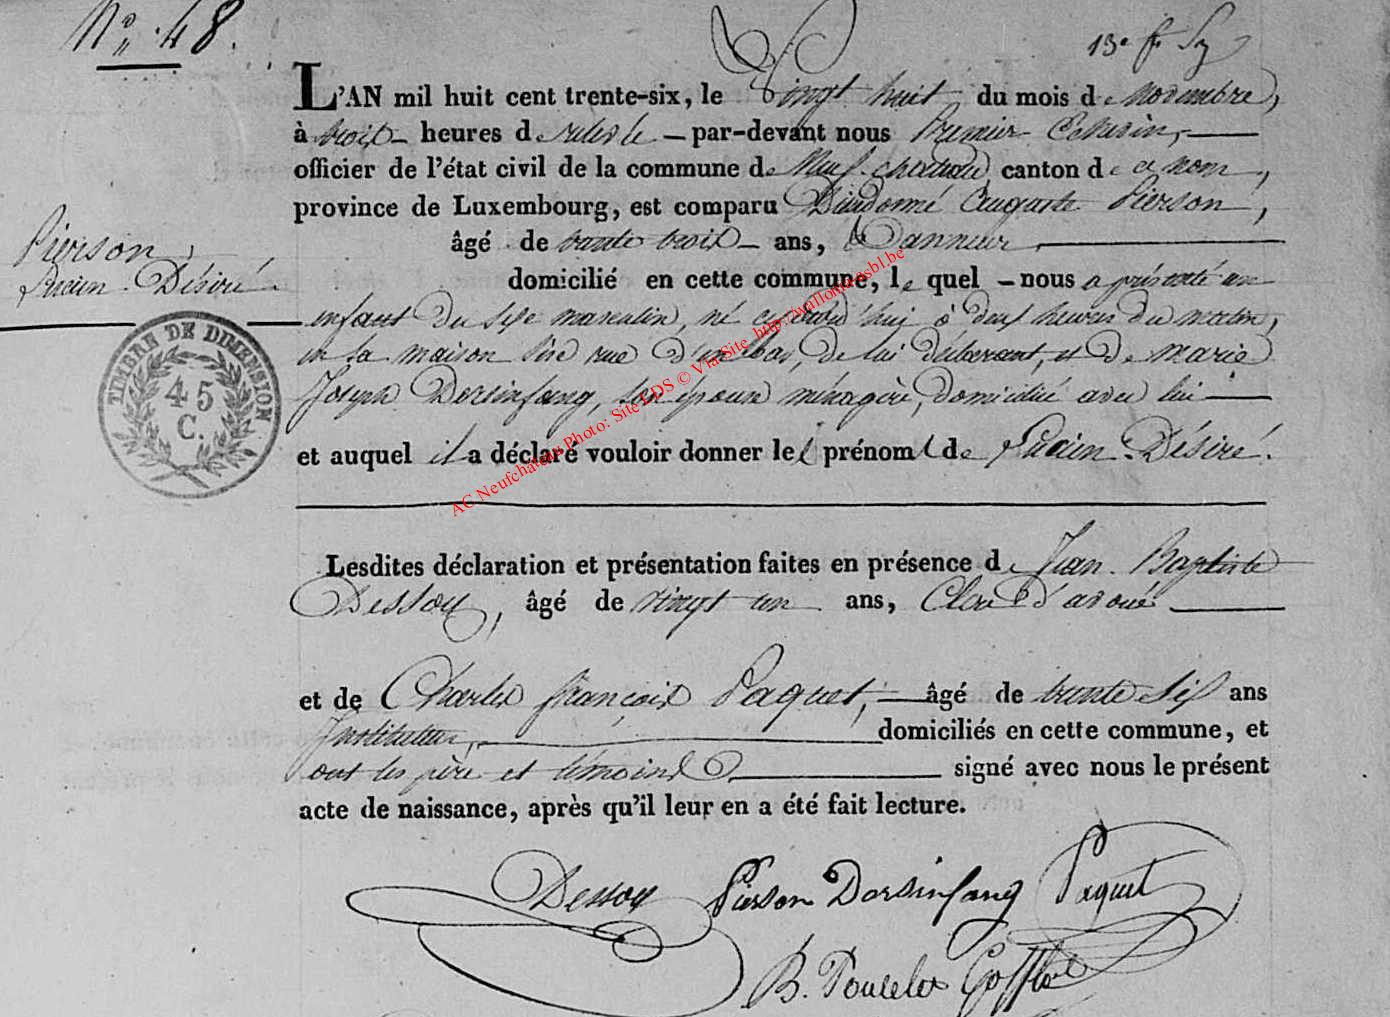 N° 48.
13e f
L'AN mil huit cent trente-six, le Vingt huit du mois de novembre,
à trois heures de relevée — par-devant nous Premier Echevin,
officier de l'état civil de la commune de Neufchateau canton de ce nom,
province de Luxembourg, est comparu Dieudonné Auguste Pierson,
âgé de trente trois ans, Tanneur
domicilié en cette commune, le quel — nous a présenté un
Pierson,
Lucien Désiré
enfant du sexe masculin, né aujourd'hui à deux heures du matin,
en sa maison sise rue d'en bas, de lui déclarant, et de Marie
Joseph Dorsinfang, son épouse ménagère, domiciliée avec lui
et auquel il a déclaré vouloir donner les prénoms de Lucien Désiré.
TIMBRE DE DIMENSION
45
C.
AC Neufchateau Photo: Site LDS © Via Site http://walloniaasbl.be
Lesdites déclaration et présentation faites en présence de Jean Baptiste
Dessoy, âgé de vingt un ans, Clerc d'avoué
et de Charles françois Paquet, âgé de trente six ans
Instituteur, domiciliés en cette commune, et
ont les père et témoins signé avec nous le présent
acte de naissance, après qu'il leur en a été fait lecture.
Dessoy Pierson Dorsinfang Paquet
B. Poncelet